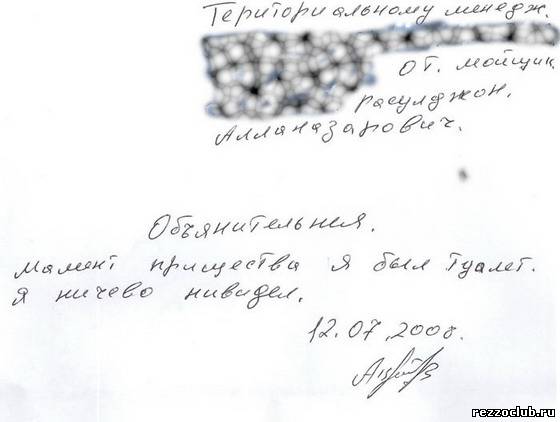 Териториальному менедж.
от. мойщик
расулджон.
Алланазарович.
Объянительная.
мамент прищества я был туалет.
я ничево нивидел.
12.07.2006.
rezzoclub.ru